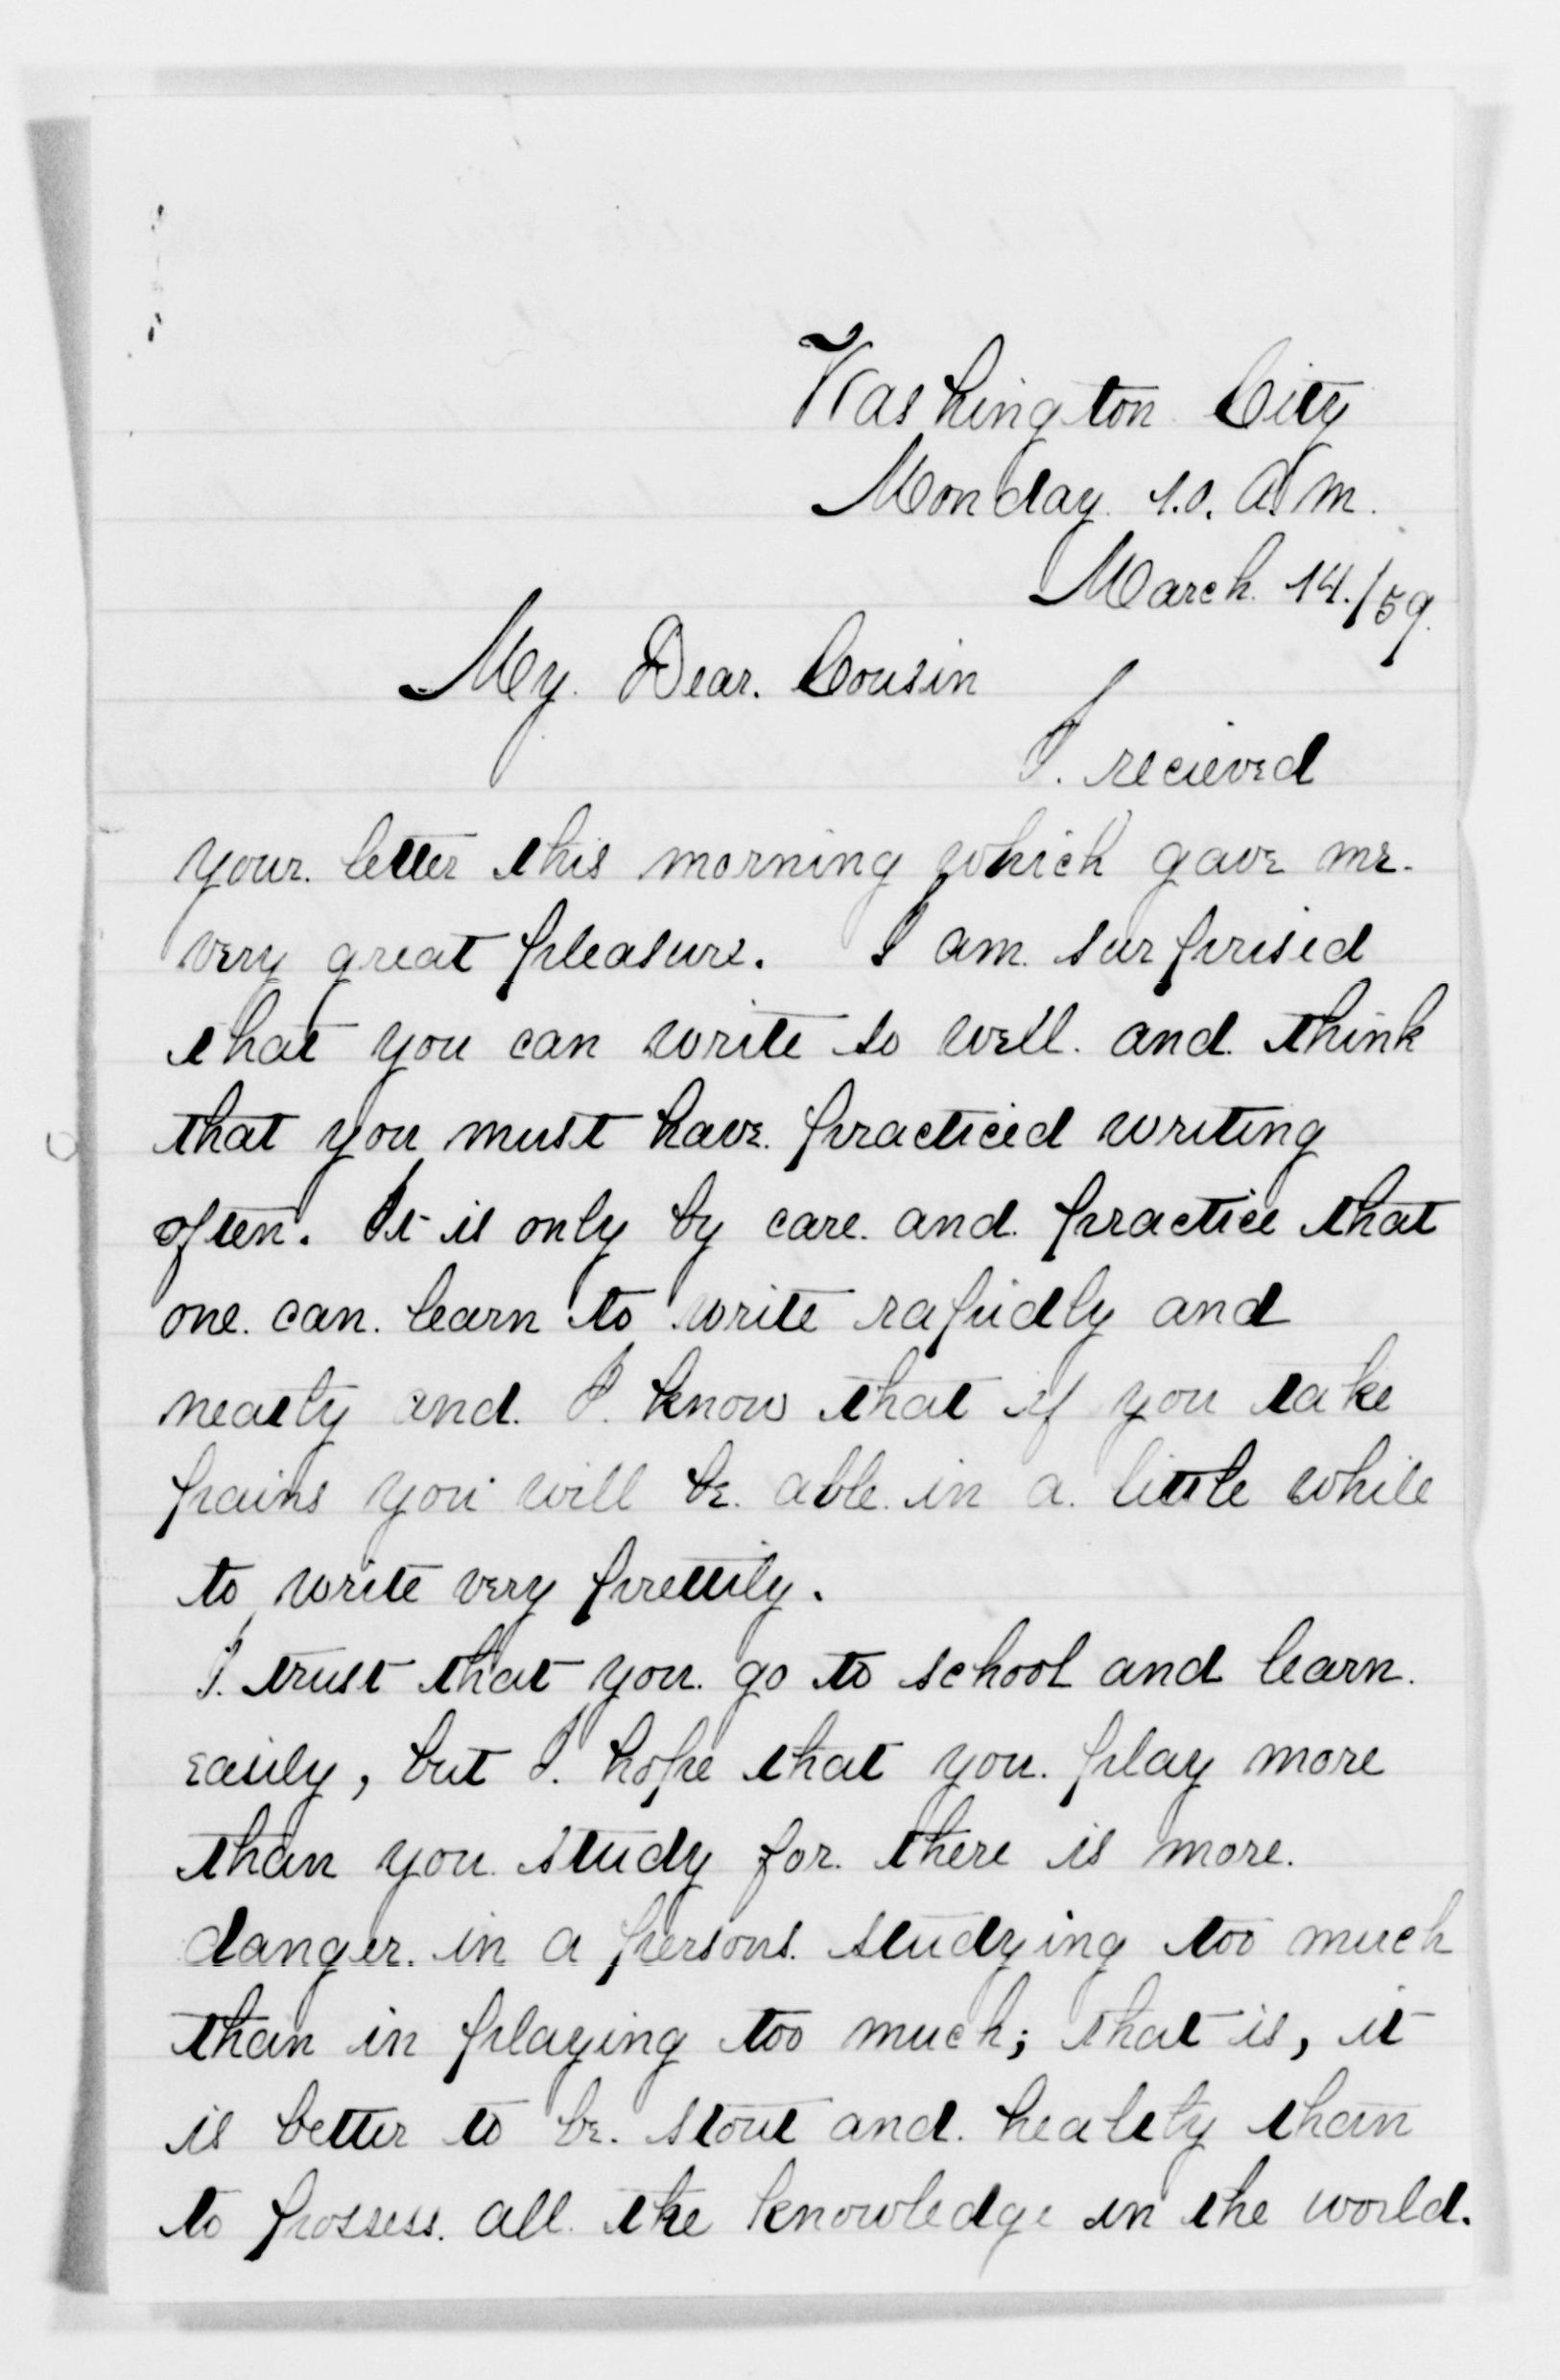 Washington City
Monday. 10. A.M.
March. 14./59.
My. Dear. Cousin
I. recieved
your. letter this morning which gave me.
very great pleasure. I am. surprised
that you can write so well. and. think
that you must have. practiced writing
often. It is only by care. and. practice that
one. can. learn to write rapidly and
neatly and. I. know that if you take
pains you will be. able. in a. little while
to write very prettily.
I. trust that you. go to school and learn.
easily, but I. hope that you. play more
than you. study for. there is more.
danger. in a persons. studying too much
than in playing too much; that is, it
is better to be. stout and. healty than
to possess. all. the knowledge in the world.